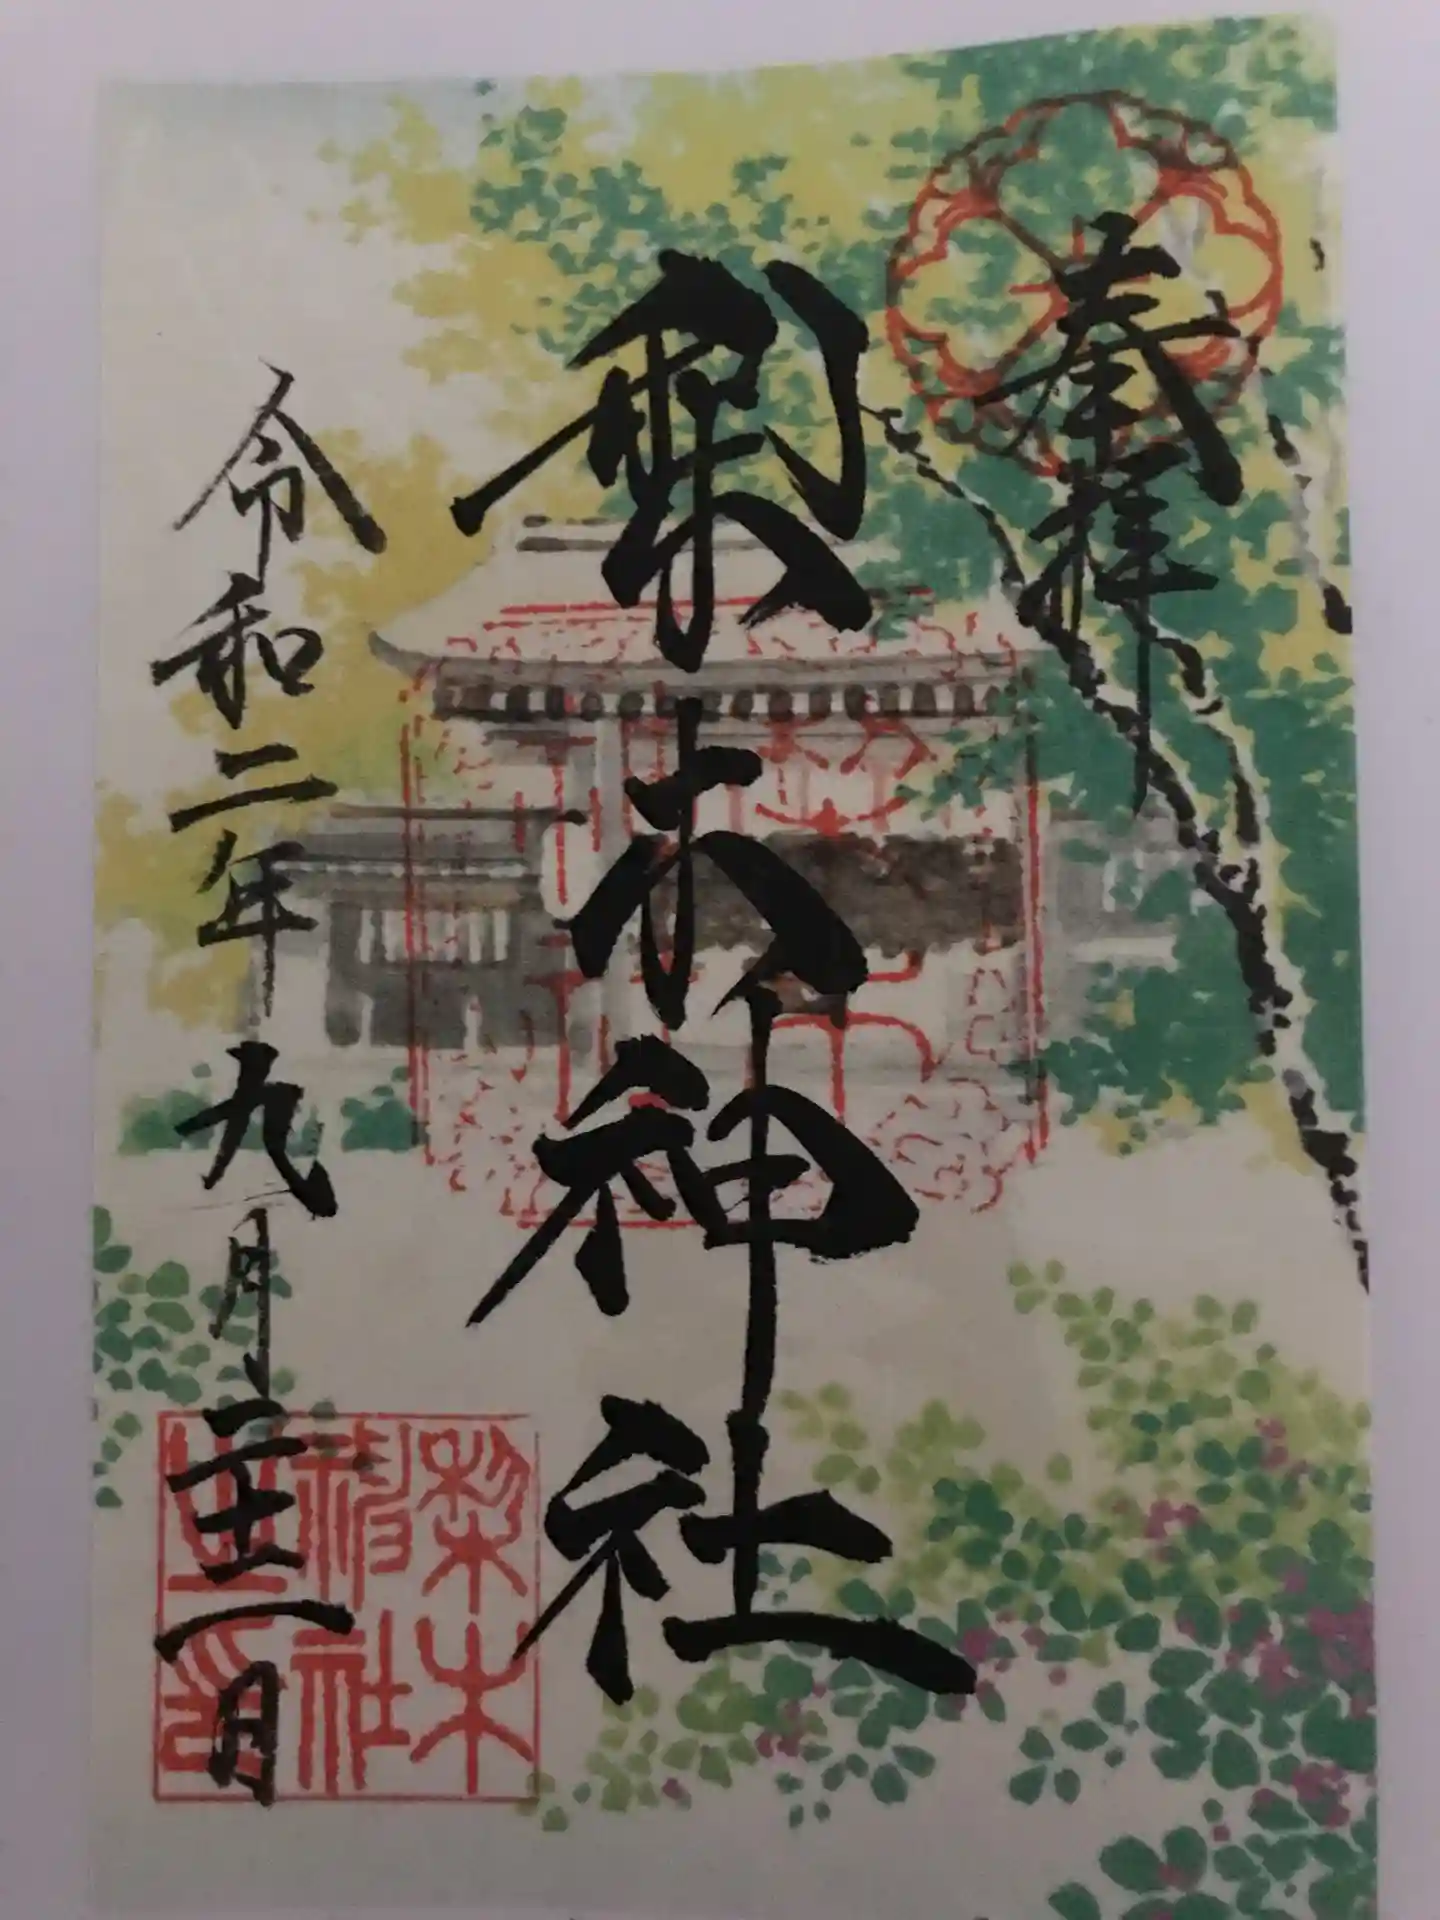 奉拝
梨木神社
令和二年九月二十一日
梨木
神社
之印